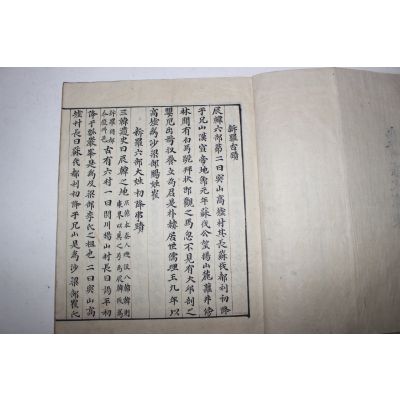 新羅古蹟
辰韓六部第二曰突山高墟村其長蘇伐都利初降
于兄山漢宣帝地節元年蘇伐公望楊山麓蘿井傍
林間有白馬跪拜狀卽觀之馬忽不見有大卵剖之
嬰兒出焉收養立爲君是朴赫居世儒理王九年以
高墟爲沙梁部賜姓崔
新羅六部大姓初降事蹟
三韓遺史曰辰韓之地
古有六村一曰閼川楊山村長曰謁平初
降于瓢巖峯是爲及梁部李氏之祖也二曰突山高
墟村長曰蘇伐都利初降于兄山是爲沙梁部崔氏